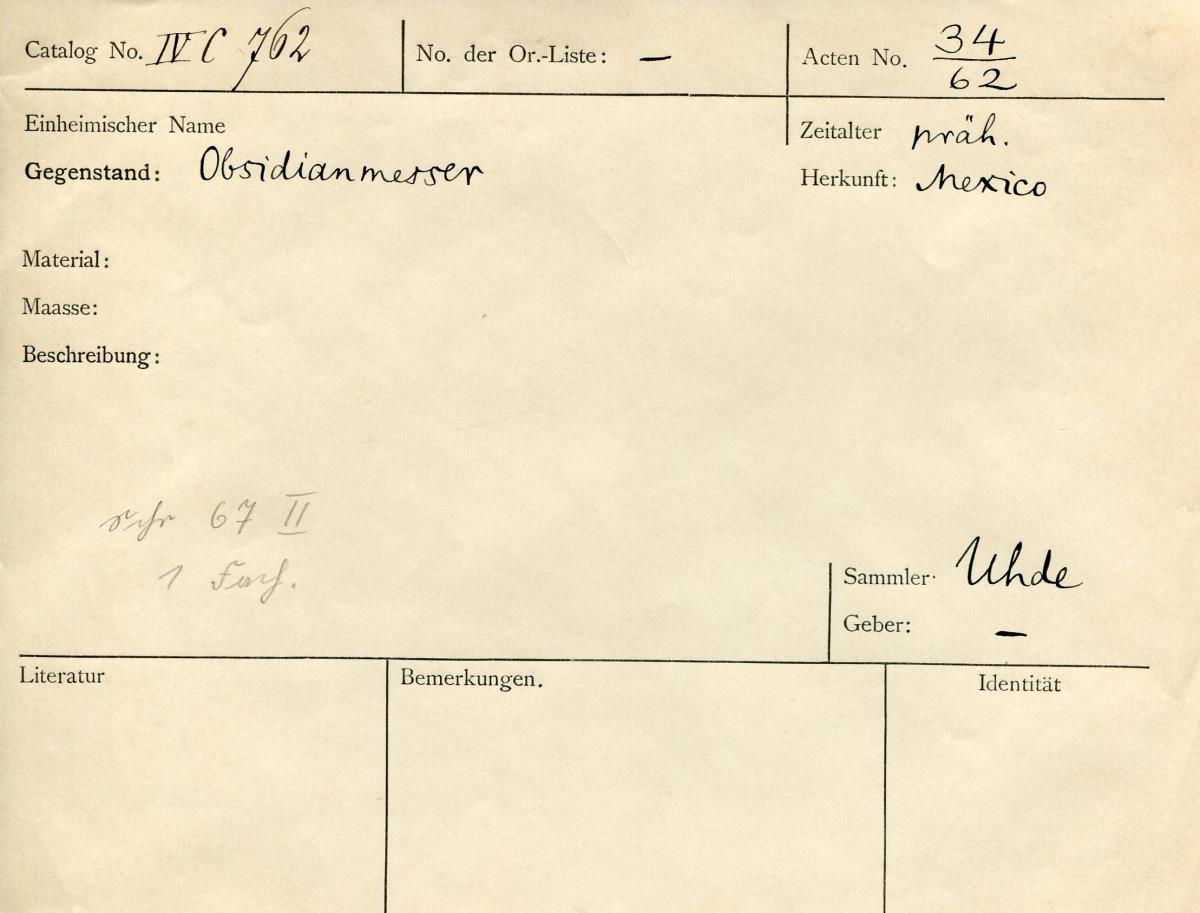 Catalog No. IV C 762 No. der Or.-Liste: — Acten No. 34/62
Einheimischer Name Zeitalter präh.
Gegenstand: Obsidianmesser Herkunft: Mexico
Material:
Maasse:
Beschreibung:
Schr 67 II
1 Fach.
Sammler· Uhde
Geber: —
Literatur Bemerkungen. Identität